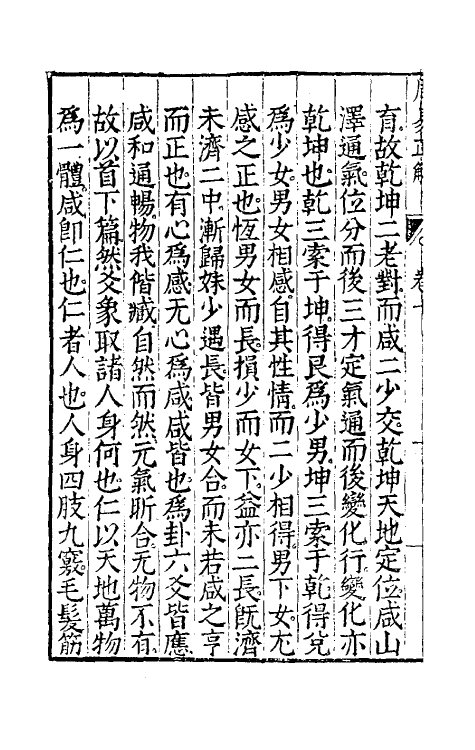 周易正解
卷十
育故乾坤二老對而咸二少交乾坤天地定位咸山
澤通氣位分而後三才定氣通而後變化行變化亦
乾坤也乾三索于坤得艮爲少男坤三索于乾得兌
爲少女男女相感自其性情而二少相得男下女尤
感之正也恆男女而長損少而女下益亦二長旣濟
未濟二中漸歸妹少遇長皆男女合而未若咸之亨
而正也有心爲感无心爲咸咸皆也爲卦六爻皆應
咸和通暢物我偕臧自然而然元氣昕合无物不有
故以首下篇然爻象取諸人身何也仁以天地萬物
爲一體咸卽仁也仁者人也人身四肢九竅毛髮筋